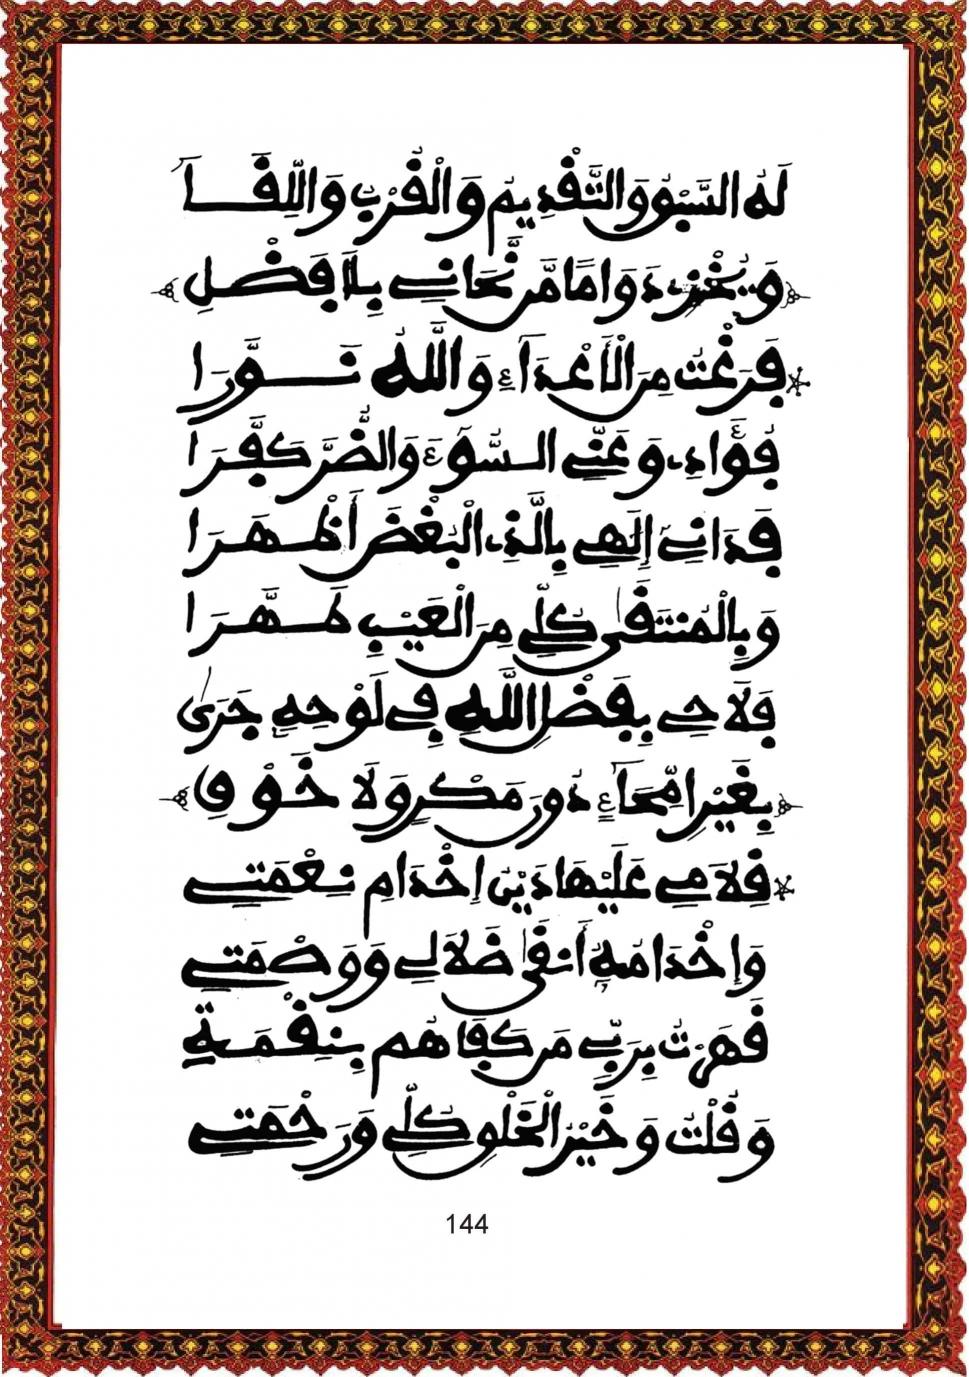 لَهُ السَّبْقُ وَالتَّقْدِيمُ وَالْقُرْبُ وَاللِّقَآ
وَيُخْزِي وَامَا مَن نَّحَانِي بِلَا فَضْلِ
فَرَغْتُ مِنَ الْأَعْدَآءِ وَاللَّهُ نَوَّرَا
فُؤَادِي وَعَنِّي السُّوٓءَ وَالضُّرَّ كَفَّرَا
فَدَانِي إِلَهِي بِالَّذِي الْبُغْضَ أَظْهَرَا
وَبِالْمُنتَقَى كُلِّي مِنَ الْعَيْبِ طَهَّرَا
فَلَاحِي بِفَضْلِ اللَّهِ فِي لَوْحِهِ جَرَى
بِغَيْرِ امِّحَآءٍ دُونَ مَكْرٍ وَلَا خَوْفِ
فِلَامِي عَلَيْهَا دَيْنُ إِخْدَامِ نِعْمَتِي
وَإِخْدَامُهُ أَنْقَى ضَلَالِي وَوَصْمَتِي
قَهَرْتُ بِرَبِّي مَن كَفَاهُم بِنِقْمَةٍ
وَقُلْتُ وَخَيْرُ الْخَلْقِ كُلِّي وَرَحْمَتِي
144